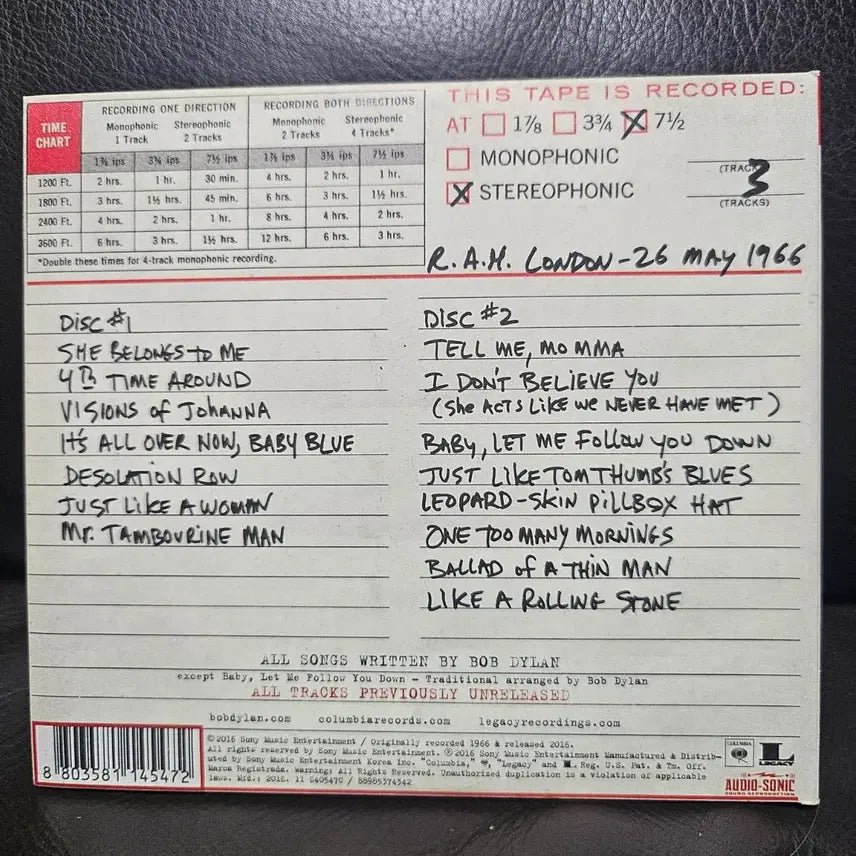 TIME CHART
RECORDING ONE DIRECTION
RECORDING BOTH DIRECTIONS
Monophonic 1 Track
Stereophonic 2 Tracks
Monophonic 2 Tracks
Stereophonic 4 Tracks*
1⅞ ips 3¾ ips 7½ ips 1⅞ ips 3¾ ips 7½ ips
1200 Ft. 2 hrs. 1 hr. 30 min. 4 hrs. 2 hrs. 1 hr.
1800 Ft. 3 hrs. 1½ hrs. 45 min. 6 hrs. 3 hrs. 1½ hrs.
2400 Ft. 4 hrs. 2 hrs. 1 hr. 8 hrs. 4 hrs. 2 hrs.
3600 Ft. 6 hrs. 3 hrs. 1½ hrs. 12 hrs. 6 hrs. 3 hrs.
*Double these times for 4-track monophonic recording.
THIS TAPE IS RECORDED:
AT 1⅞ 3¾ X 7½
MONOPHONIC
(TRACK)
X STEREOPHONIC
3
(TRACKS)
R.A.H. LONDON - 26 MAY 1966
DISC #1
SHE BELONGS TO ME
4th TIME AROUND
VISIONS of JOHANNA
IT'S ALL OVER NOW, BABY BLUE
DESOLATION ROW
JUST LIKE A WOMAN
Mr. TAMBOURINE MAN
DISC #2
TELL ME, MOMMA
I DON'T BELIEVE YOU
(She ACTS LIKE WE NEVER HAVE MET)
BABY, LET ME FOLLOW YOU DOWN
JUST LIKE TOM THUMB'S BLUES
LEOPARD-SKIN PILLBOX HAT
ONE TOO MANY MORNINGS
BALLAD of A THIN MAN
LIKE A ROLLING STONE
ALL SONGS WRITTEN BY BOB DYLAN
except Baby, Let Me Follow You Down - Traditional arranged by Bob Dylan
ALL TRACKS PREVIOUSLY UNRELEASED
bobdylan.com columbiarecords.com legacyrecordings.com
8 803581 145472
©2016 Sony Music Entertainment / Originally recorded 1966 & released 2016.
All rights reserved by Sony Music Entertainment. ℗ 2016 Sony Music Entertainment Manufactured & Distrib-
uted by Sony Music Entertainment Korea Inc. "Columbia," "Legacy" and Reg. U.S. Pat. & Tm. Off.
Marca Registrada. Warning: All Rights Reserved. Unauthorized duplication is a violation of applicable
laws. Mfd.: 2016. 11 / 88985374342
COLUMBIA
LEGACY
AUDIO-SONIC
SOUND REPRODUCTION